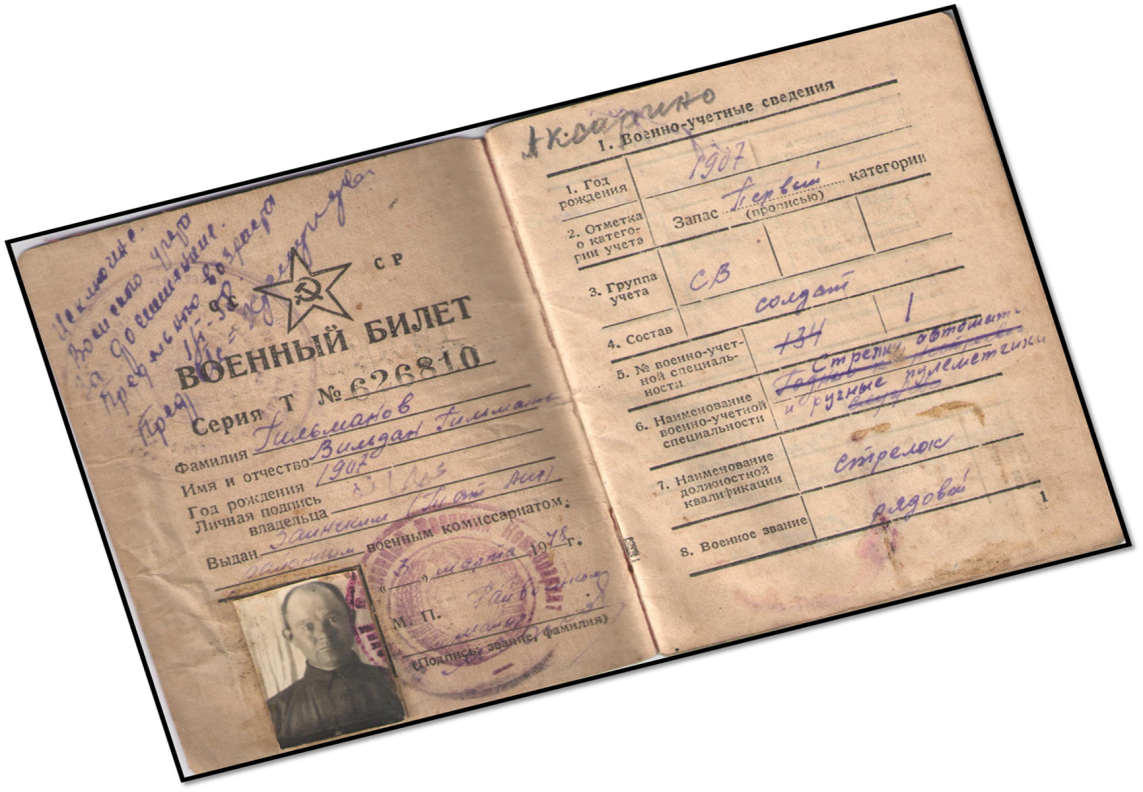 Исключен с
воинского учета
за достижение.
предельного возраста
СССР
ВОЕННЫЙ БИЛЕТ
Серия Т № 626810
Фамилия Гильманов
Имя и отчество Вильдан
Год рождения 1907
Личная подпись
владельца
Выдан Заинским
районным военным комиссариатом.
« 3 » марта 1948 г.
М. П.
(Подпись, звание, фамилия)
Аксарино
1. Военно-учетные сведения
1. Год
рождения
1907
2. Отметка
о катего-
рии учета
Запас Первой категории
(прописью)
3. Группа
учета
СВ
4. Состав
солдат
5. № военно-учет-
ной специаль-
ности
134
1
6. Наименование
военно-учетной
специальности
Стрелки, автомат.
и ручные пулеметчики
7. Наименование
должностной
квалификации
стрелок
8. Военное звание
рядовой
1